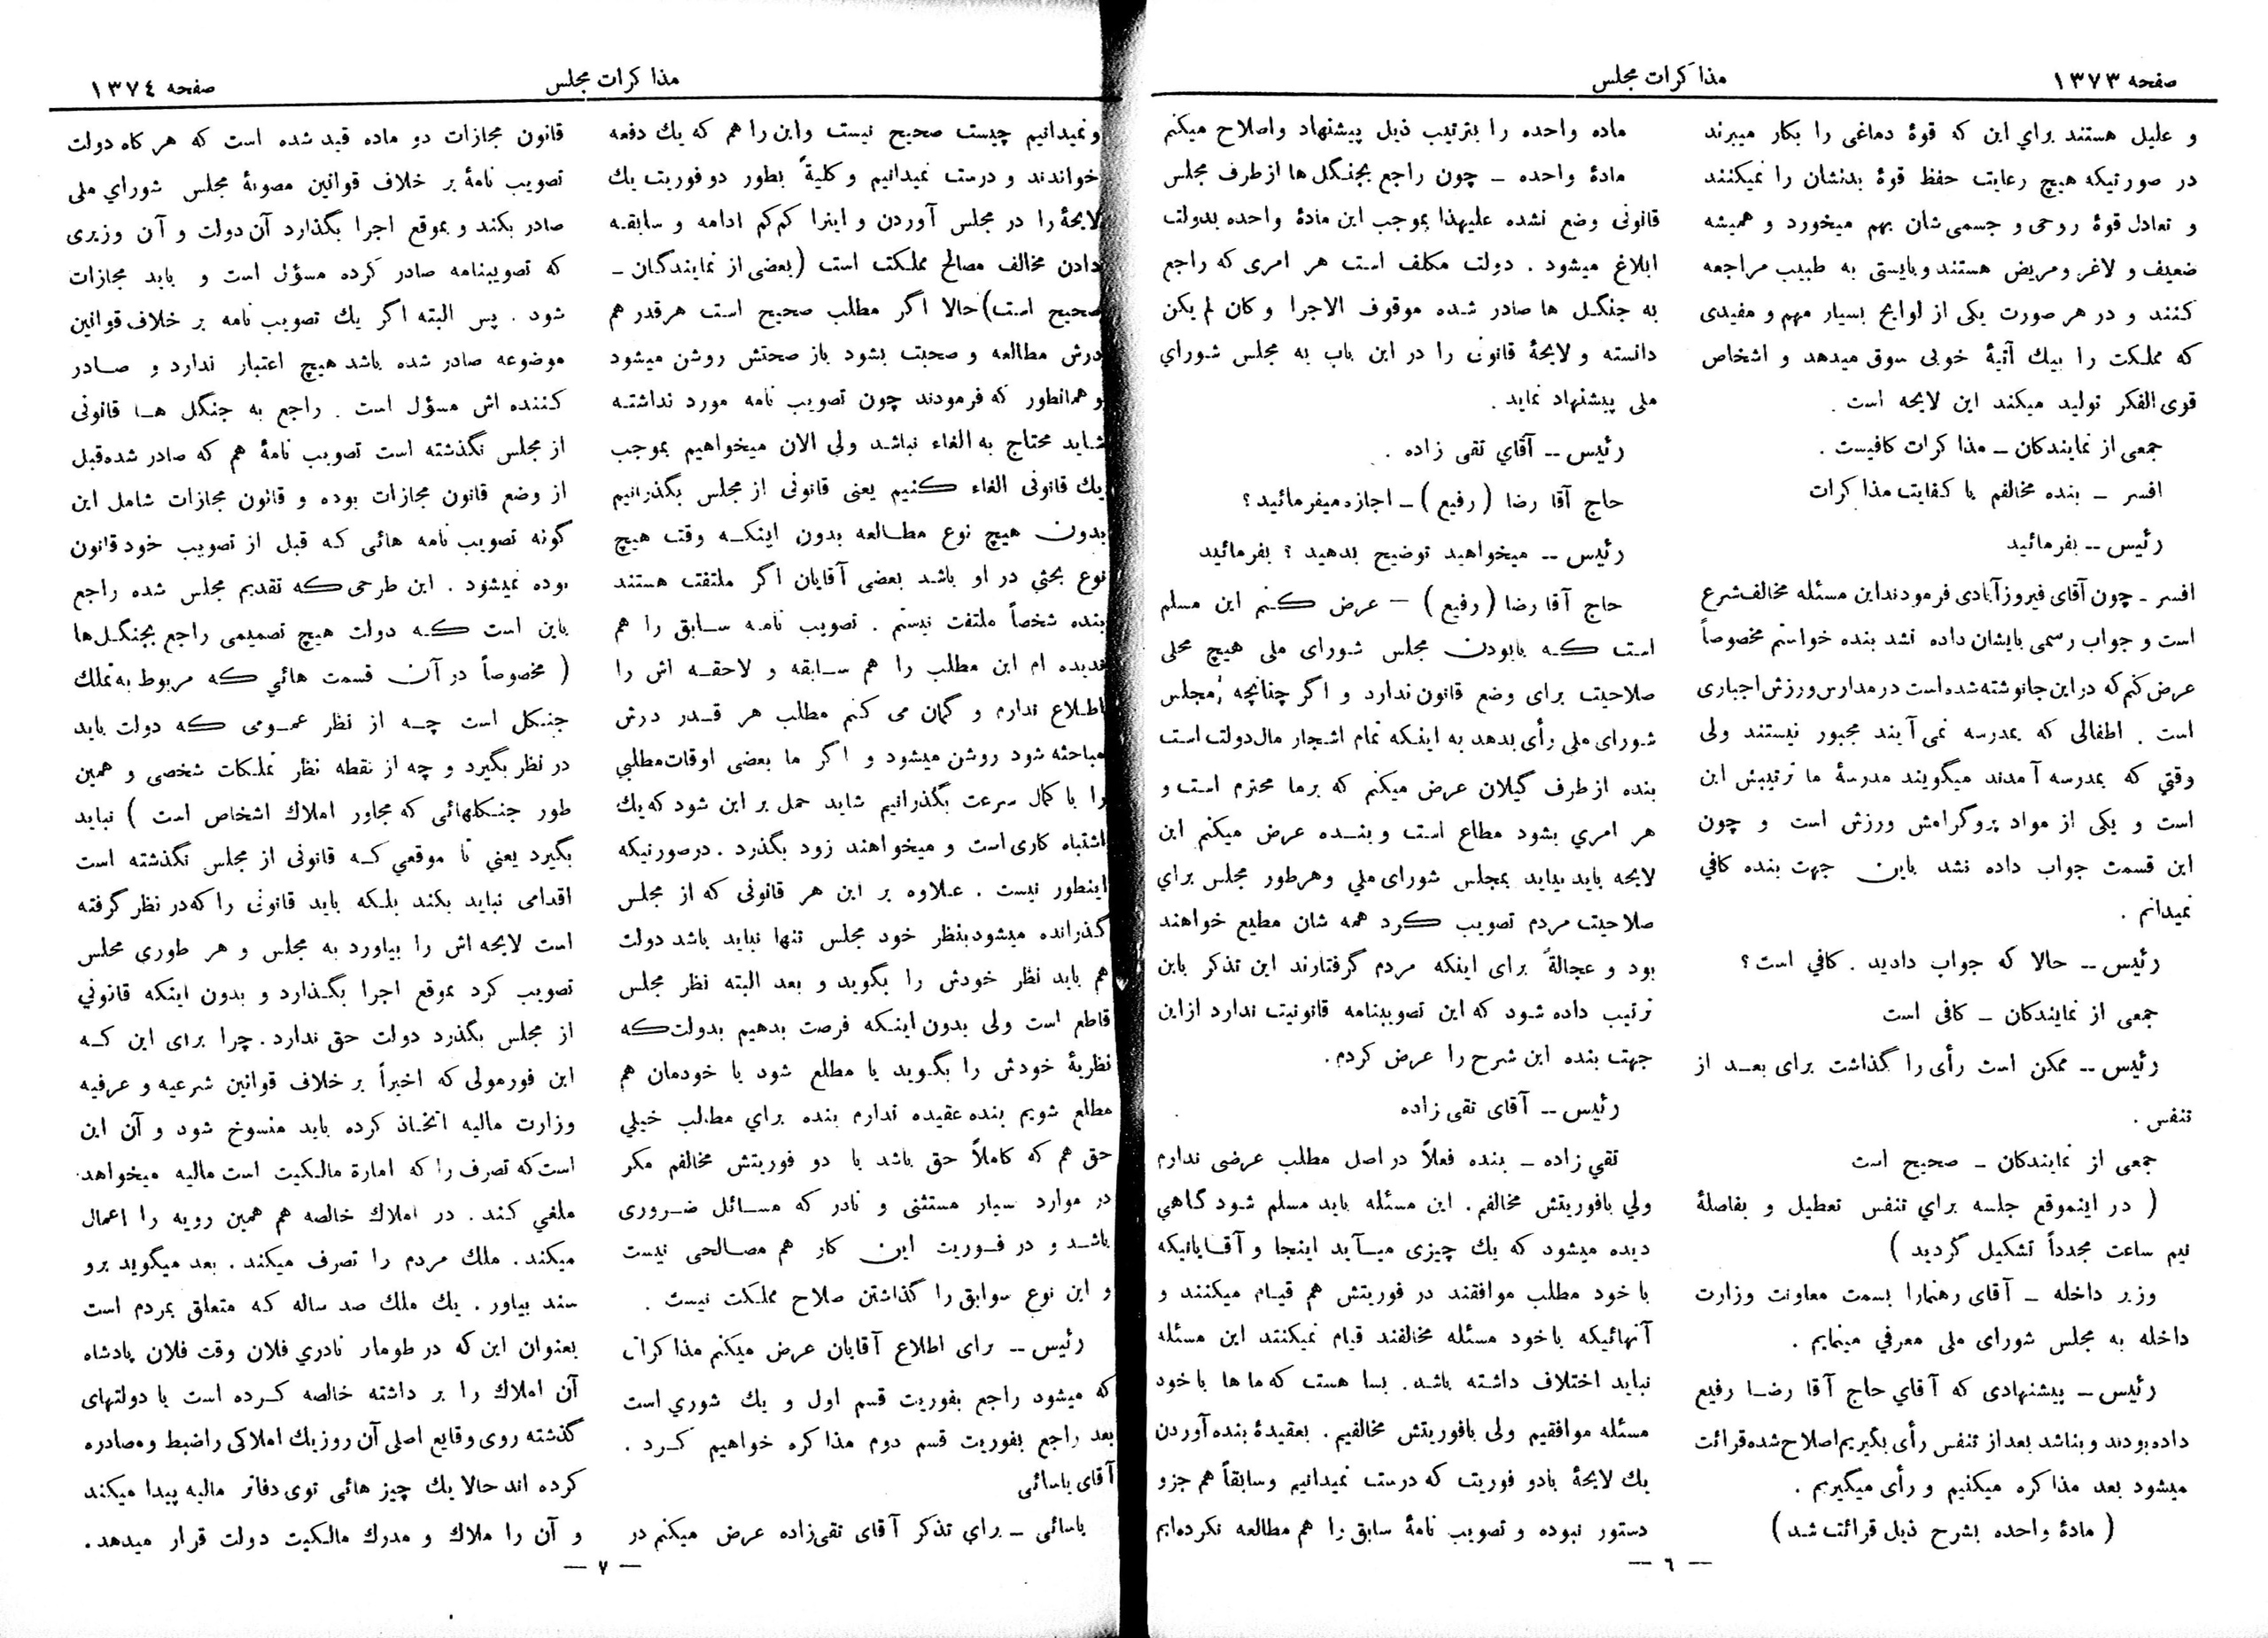 صفحه ۱۳۷۳
مذاکرات مجلس
و علیل هستند برای این که قوهٔ دماغی را بکار میبرند
در صورتیکه هیچ رعایت حفظ قوهٔ بدنشان را نمیکنند
و تعادل قوهٔ روحی و جسمی شان بهم میخورد و همیشه
ضعیف و لاغر و مریض هستند و بایستی به طبیب مراجعه
کنند و در هر صورت یکی از لوایح بسیار مهم و مفیدی
که مملکت را بیك آتیهٔ خوبی سوق میدهد و اشخاص
قوی الفکر تولید میکند این لایحه است .
جمعی از نمایندگان ــ مذاکرات کافیست .
افسر ــ بنده مخالفم با کفایت مذاکرات
رئیس -- بفرمائید
افسر ـ چون آقای فیروزآبادی فرمودند این مسئله مخالف شرع
است و جواب رسمی بایشان داده نشد بنده خواستم مخصوصاً
عرض کنم که در این جا نوشته شده است در مدارس ورزش اجباری
است . اطفالی که بمدرسه نمی آیند مجبور نیستند ولی
وقتی که بمدرسه آمدند میگویند مدرسهٔ ما ترتیبش این
است و یکی از مواد پروگرامش ورزش است و چون
این قسمت جواب داده نشد باین جهت بنده کافی
نمیدانم .
رئیس -- حالا که جواب دادید . کافی است ؟
جمعی از نمایندگان ــ کافی است
رئیس -- ممکن است رأی را گذاشت برای بعد از
تنفس .
جمعی از نمایندگان ــ صحیح است
( در اینموقع جلسه برای تنفس تعطیل و بفاصلهٔ
نیم ساعت مجدداً تشکیل گردید )
وزیر داخله ــ آقای رهنما را بسمت معاونت وزارت
داخله به مجلس شورای ملی معرفی مینمایم .
رئیس ــ پیشنهادی که آقای حاج آقا رضا رفیع
داده بودند و بنا شد بعد از تنفس رأی بگیریم اصلاح شده قرائت
میشود بعد مذاکره میکنیم و رأی میگیریم .
( مادهٔ واحده بشرح ذیل قرائت شد )
ماده واحده را بترتیب ذیل پیشنهاد و اصلاح میکنم
مادهٔ واحده ــ چون راجع بجنگل ها از طرف مجلس
قانونی وضع نشده علیهذا بموجب این مادهٔ واحده بدولت
ابلاغ میشود . دولت مکلف است هر امری که راجع
به جنگل ها صادر شده موقوف الاجرا و کان لم یکن
دانسته و لایحهٔ قانونی را در این باب به مجلس شورای
ملی پیشنهاد نماید .
رئیس -- آقای تقی زاده .
حاج آقا رضا ( رفیع ) ــ اجازه میفرمائید ؟
رئیس -- میخواهید توضیح بدهید ؟ بفرمائید
حاج آقا رضا ( رفیع ) — عرض کنم این مسلم
است که بابودن مجلس شورای ملی هیچ محلی
صلاحیت برای وضع قانون ندارد و اگر چنانچه مجلس
شورای ملی رأی بدهد به اینکه تمام اشجار مال دولت است
بنده از طرف گیلان عرض میکنم که بر ما محترم است و
هر امری بشود مطاع است و بنده عرض میکنم این
لایحه باید بیاید بمجلس شورای ملی و هر طور مجلس برای
صلاحیت مردم تصویب کرد همه شان مطیع خواهند
بود و عجالةً برای اینکه مردم گرفتارند این تذکر باین
ترتیب داده شود که این تصویبنامه قانونیت ندارد از این
جهت بنده این شرح را عرض کردم .
رئیس -- آقای تقی زاده
تقی زاده ــ بنده فعلاً در اصل مطلب عرضی ندارم
ولی بافوریتش مخالفم . این مسئله باید مسلم شود گاهی
دیده میشود که یك چیزی میآید اینجا و آقایانیکه
با خود مطلب موافقند در فوریتش هم قیام میکنند و
آنهائیکه با خود مسئله مخالفند قیام نمیکنند این مسئله
نباید اختلاف داشته باشد . بسا هست که ما ها با خود
مسئله موافقیم ولی بافوریتش مخالفیم . بعقیدهٔ بنده آوردن
یك لایحهٔ بادو فوریت که درست نمیدانیم و سابقاً هم جزو
دستور نبوده و تصویب نامهٔ سابق را هم مطالعه نکرده‌ایم
— ٦ —
مذاکرات مجلس
صفحه ۱۳۷٤
و نمیدانیم چیست صحیح نیست و این را هم که یك دفعه
خواندند و درست نمیدانیم و کلیةً بطور دو فوریت یك
لایحهٔ را در مجلس آوردن و اینرا کم کم ادامه و سابقه
دادن مخالف مصالح مملکت است ( بعضی از نمایندگان ــ
صحیح است) حالا اگر مطلب صحیح است هر قدر هم
درش مطالعه و صحبت بشود باز صحتش روشن میشود
و همانطور که فرمودند چون تصویب نامه مورد نداشته
شاید محتاج به الغاء نباشد ولی الان میخواهیم بموجب
یك قانونی الغاء کنیم یعنی قانونی از مجلس بگذرانیم
بدون هیچ نوع مطالعه بدون اینکه وقت هیچ
نوع بحثی در او باشد بعضی آقایان اگر ملتفت هستند
بنده شخصاً ملتفت نیستم . تصویب نامه سابق را هم
ندیده ام این مطلب را هم سابقه و لاحقه اش را
اطلاع ندارم و گمان می کنم مطلب هر قدر درش
مباحثه شود روشن میشود و اگر ما بعضی اوقات مطلبی
را با کمال سرعت بگذرانیم شاید حمل بر این شود که یك
اشتباه کاری است و میخواهند زود بگذرد . در صورتیکه
اینطور نیست . علاوه بر این هر قانونی که از مجلس
گذرانده میشود بنظر خود مجلس تنها نباید باشد دولت
هم باید نظر خودش را بگوید و بعد البته نظر مجلس
قاطع است ولی بدون اینکه فرصت بدهیم بدولت که
نظریهٔ خودش را بگوید یا مطلع شود یا خودمان هم
مطلع شویم بنده عقیده ندارم بنده برای مطلب خیلی
حق هم که کاملاً حق باشد با دو فوریتش مخالفم مگر
در موارد بسیار مستثنی و نادر که مسائل ضروری
باشد و در فوریت این کار هم مصالحی نیست
و این نوع سوابق را گذاشتن صلاح مملکت نیست .
رئیس -- برای اطلاع آقایان عرض میکنم مذاکراتی
که میشود راجع بفوریت قسم اول و یك شوری است
بعد راجع بفوریت قسم دوم مذاکره خواهیم کرد .
آقای یاسائی
یاسائی ــ برای تذکر آقای تقی‌زاده عرض میکنم در
قانون مجازات دو ماده قید شده است که هر گاه دولت
تصویب نامهٔ بر خلاف قوانین مصوبهٔ مجلس شورای ملی
صادر بکند و بموقع اجرا بگذارد آن دولت و آن وزیری
که تصویبنامه صادر کرده مسؤل است و باید مجازات
شود . پس البته اگر یك تصویب نامه بر خلاف قوانین
موضوعه صادر شده باشد هیچ اعتبار ندارد و صادر
کننده اش مسؤل است . راجع به جنگل ها قانونی
از مجلس نگذشته است تصویب نامهٔ هم که صادر شده قبل
از وضع قانون مجازات بوده و قانون مجازات شامل این
گونه تصویب نامه هائی که قبل از تصویب خود قانون
بوده نمیشود . این طرحی که تقدیم مجلس شده راجع
باین است که دولت هیچ تصمیمی راجع بجنگل‌ها
( مخصوصاً در آن قسمت هائی که مربوط به تملك
جنگل است چه از نظر عمومی که دولت باید
در نظر بگیرد و چه از نقطه نظر تملکات شخصی و همین
طور جنگلهائی که مجاور املاك اشخاص است ) نباید
بگیرد یعنی تا موقعی که قانونی از مجلس نگذشته است
اقدامی نباید بکند بلکه باید قانونی را که در نظر گرفته
است لایحه اش را بیاورد به مجلس و هر طوری مجلس
تصویب کرد بموقع اجرا بگذارد و بدون اینکه قانونی
از مجلس بگذرد دولت حق ندارد . چرا برای این که
این فورمولی که اخیراً بر خلاف قوانین شرعیه و عرفیه
وزارت مالیه اتخاذ کرده باید منسوخ شود و آن این
است که تصرف را که امارهٔ مالکیت است مالیه میخواهد
ملغی کند . در املاك خالصه هم همین رویه را اعمال
میکند . ملك مردم را تصرف میکند . بعد میگوید برو
سند بیاور . یك ملك صد ساله که متعلق بمردم است
بعنوان این که در طومار نادری فلان وقت فلان پادشاه
آن املاك را بر داشته خالصه کرده است یا دولتهای
گذشته روی وقایع اصلی آن روز یك املاکی را ضبط و مصادره
کرده اند حالا یك چیز هائی توی دفاتر مالیه پیدا میکند
و آن را ملاك و مدرك مالکیت دولت قرار میدهد .
— ٧ —